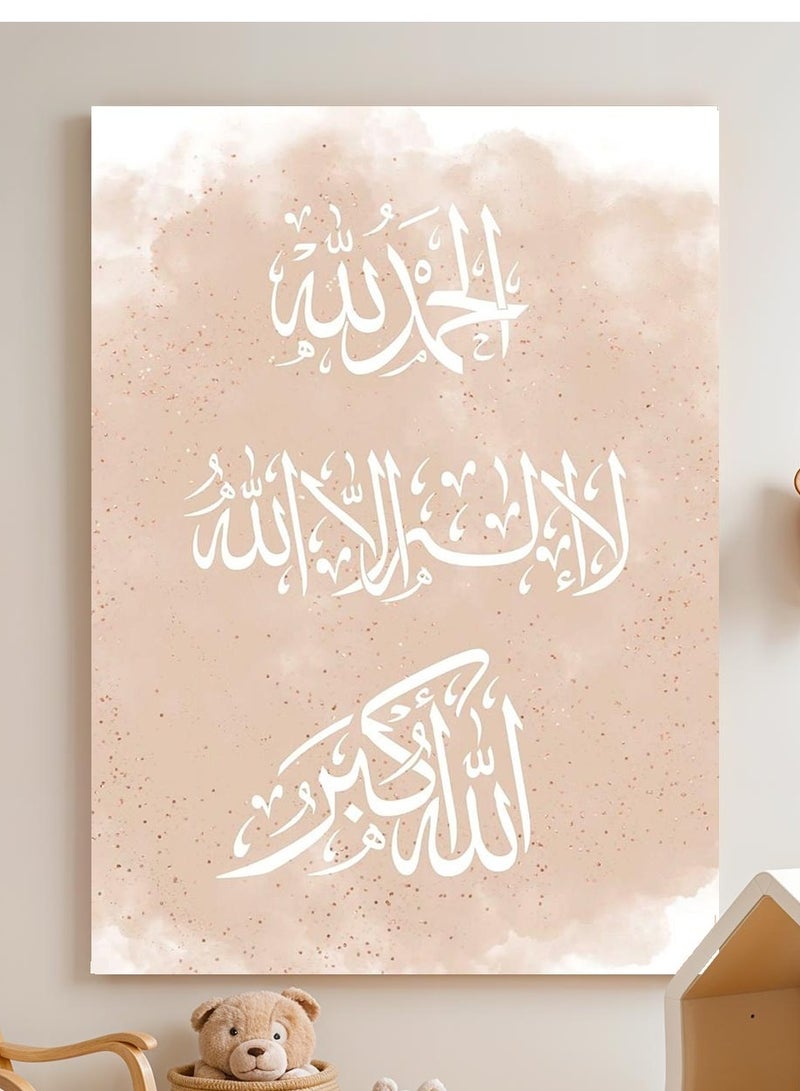 الحمد لله
لا إله إلا الله
الله أكبر